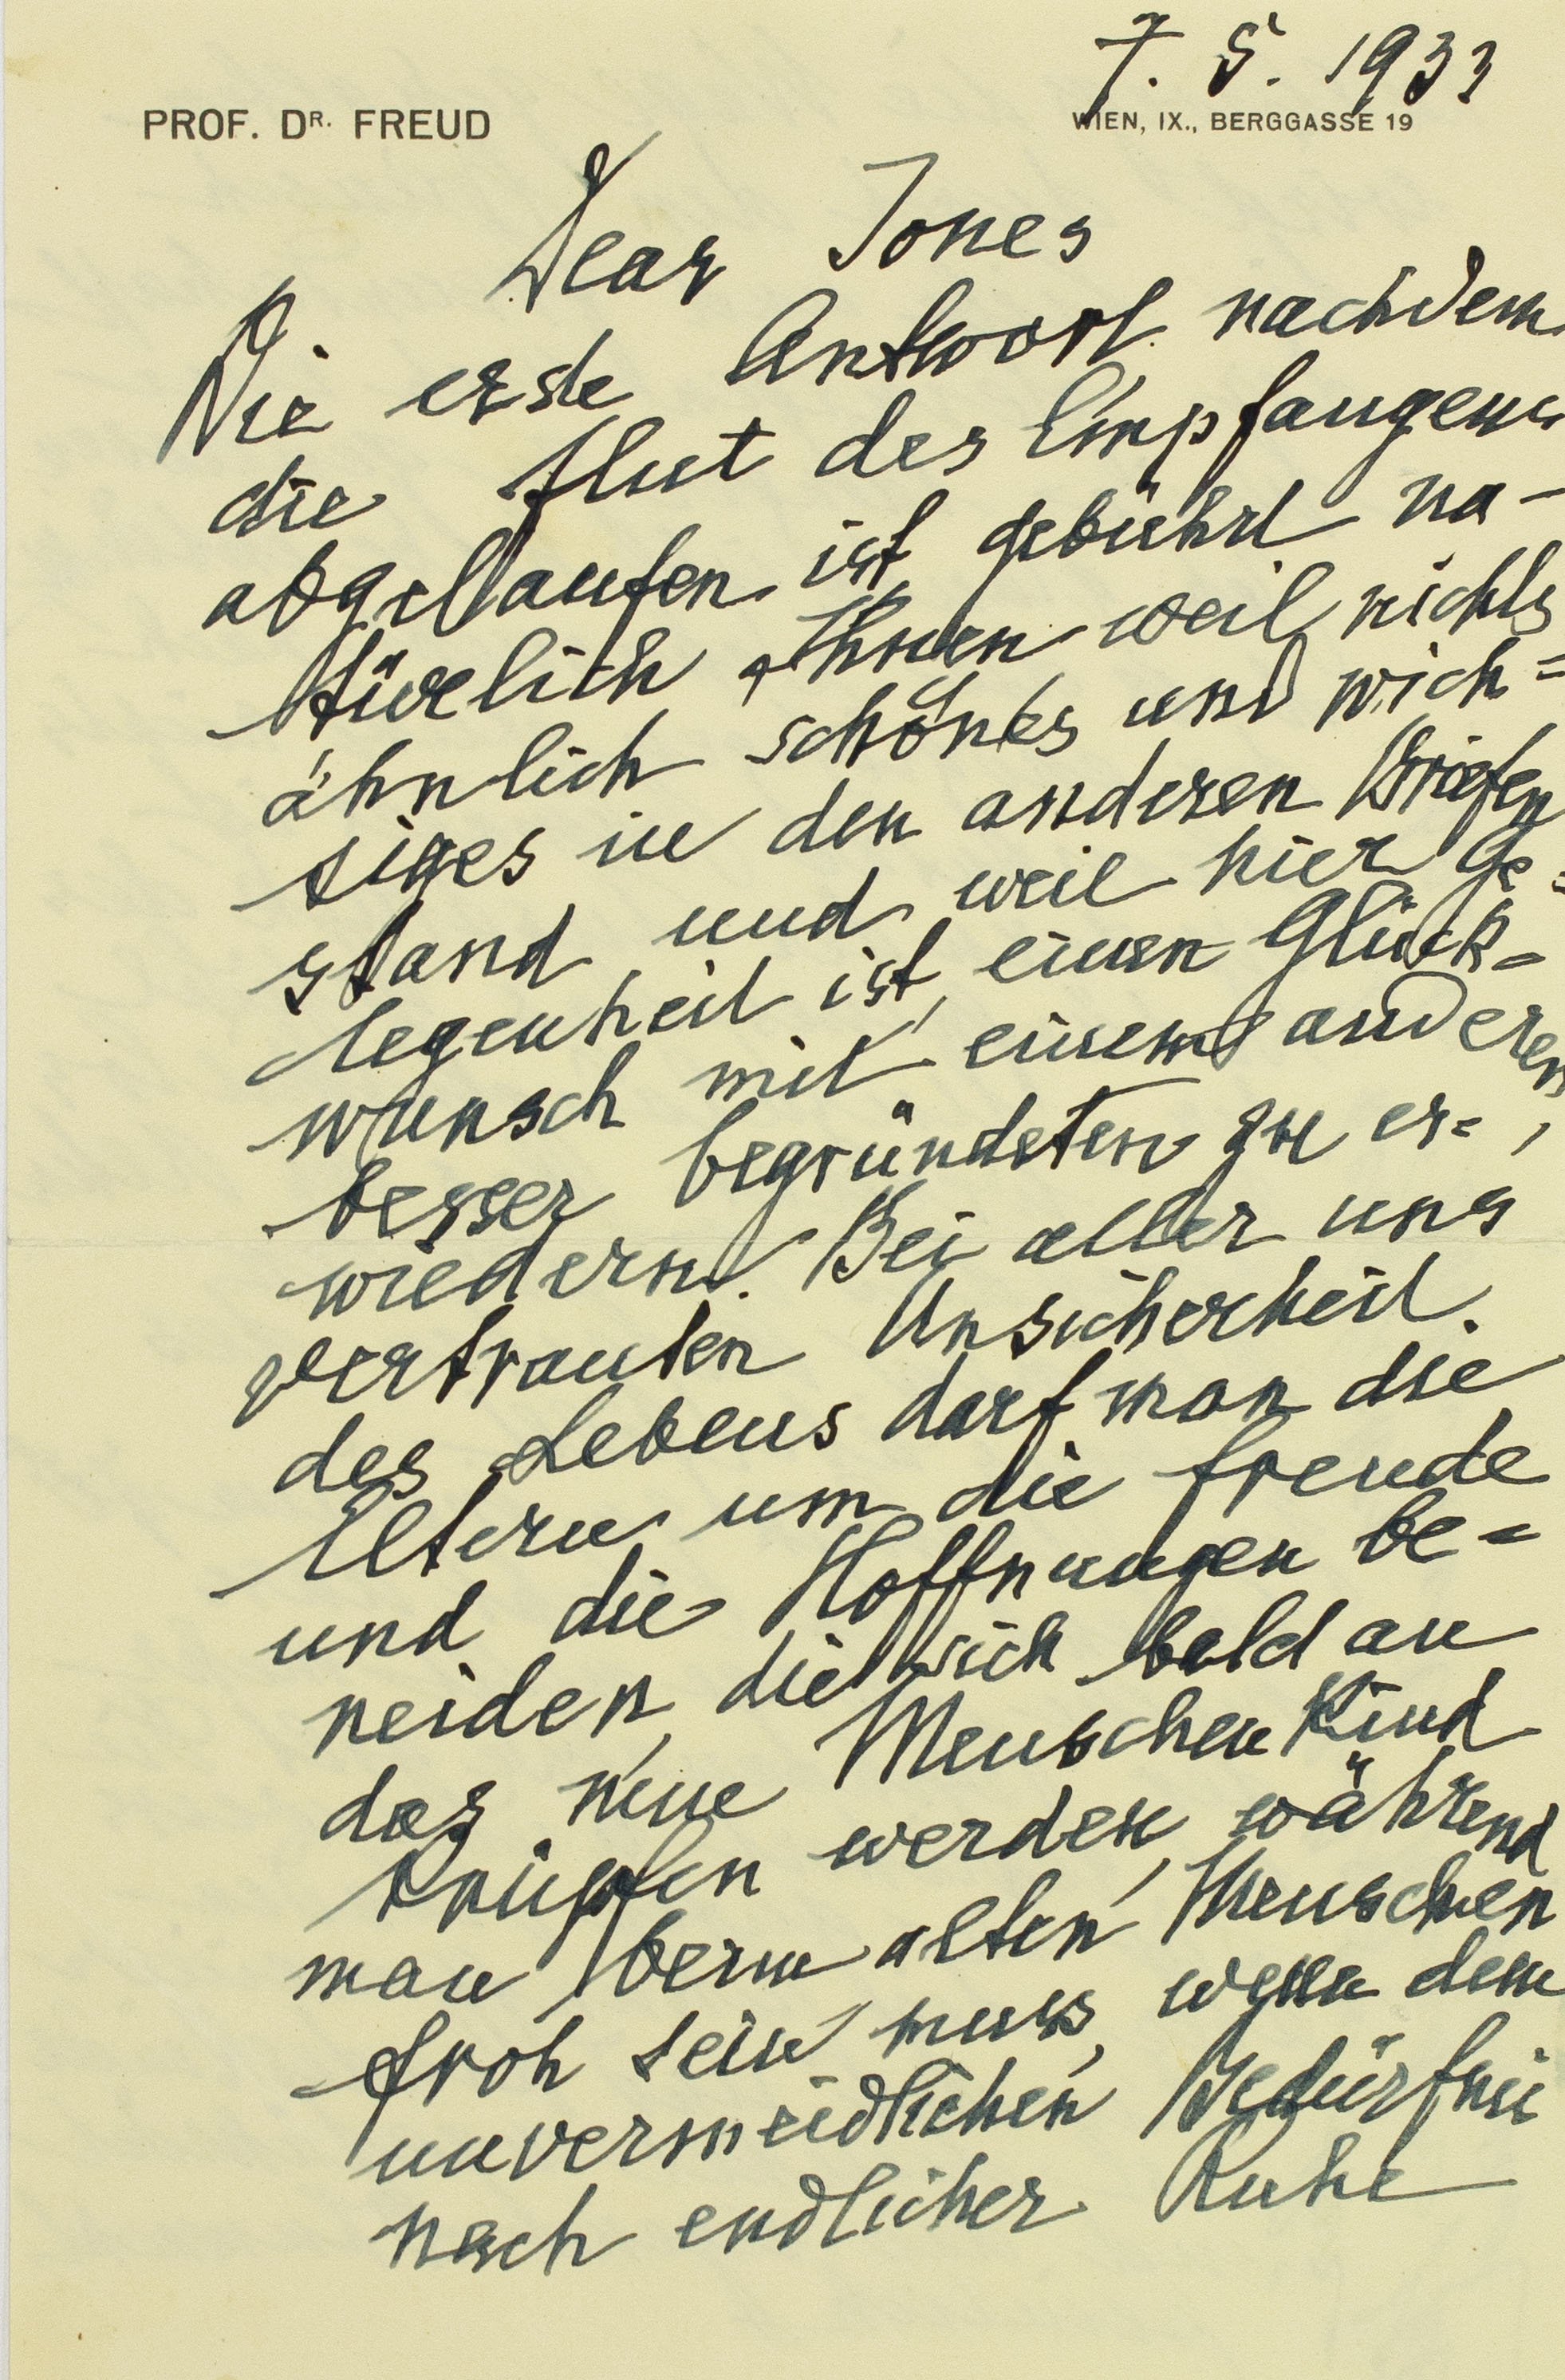 7. 5. 1933
PROF. DR. FREUD
WIEN, IX., BERGGASSE 19
Dear Jones
Die erste Antwort nachdem
die Flut des Empfangenen
abgelaufen ist gebührt na-
türlich Ihnen weil nichts
ähnlich schönes und wich=
tiges in den anderen Briefen
stand und weil hier Ge=
legenheit ist, einen Glück=
wunsch mit einem anderen,
besser begründeten zu er=
wiedern. Bei aller uns
vertrauten Unsicherheit
des Lebens darf man die
Eltern um die Freude
und die Hoffnungen be=
neiden, die sich bald an
das neue Menschenkind
knüpfen werden, während
man beim alten Menschen
froh sein muss, wenn dem
unvermeidlichen Bedürfnis
nach endlicher Ruhe